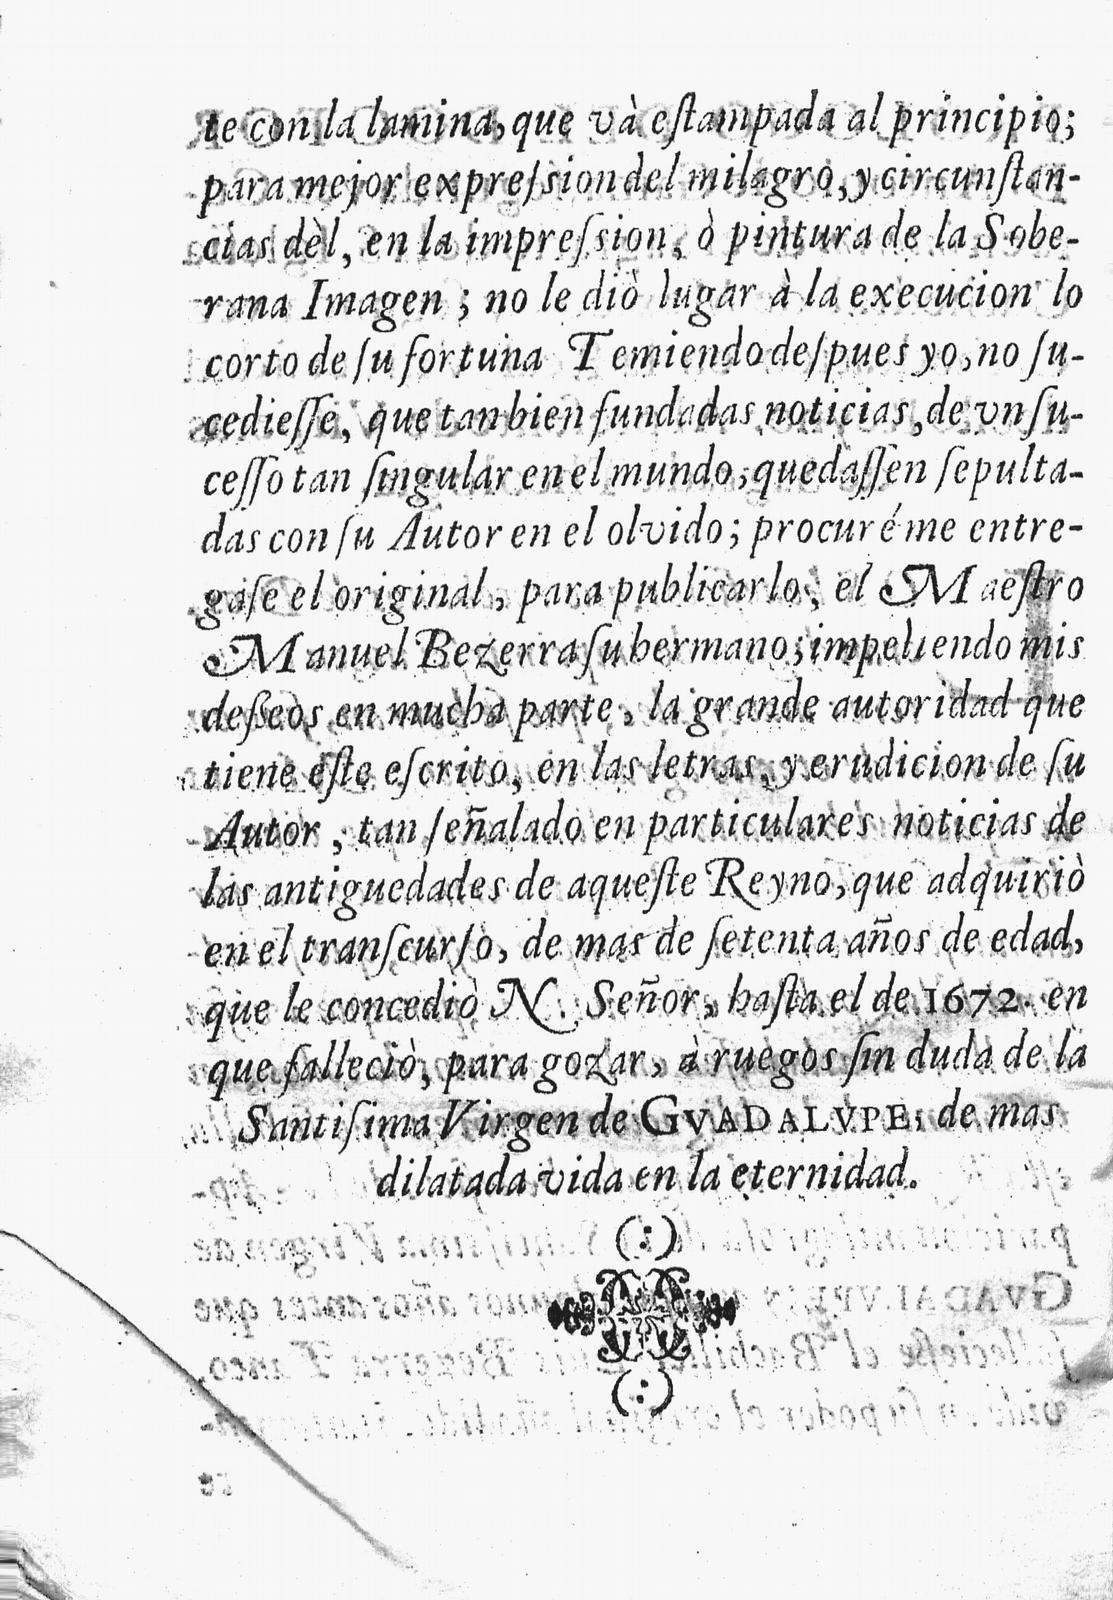 te con la lamina, que và eſtampada al principio;
para mejor expreſsion del milagro, y circunſtan-
cias dèl, en la impreſsion, ò pintura de la Sobe-
rana Imagen ; no le diò lugar à la execucion lo
corto de ſu fortuna Temiendo deſpues yo, no ſu-
cedieſſe, que tan bien fundadas noticias, de vn ſu-
ceſſo tan ſingular en el mundo, quedaſſen ſepulta-
das con ſu Autor en el olvido; procuré me entre-
gaſe el original, para publicarlo, el Maeſtro
Manuel Bezerra ſu hermano; impeliendo mis
deſseos en mucha parte, la grande autoridad que
tiene eſte eſcrito, en las letras, y erudicion de ſu
Autor, tan ſeñalado en particulares noticias de
las antiguedades de aqueſte Reyno, que adquiriò
en el tranſcurſo, de mas de ſetenta años de edad,
que le concediò N. Señor, haſta el de 1672. en
que falleciò, para gozar, à ruegos ſin duda de la
Santiſsima Virgen de GVADALVPE, de mas
dilatada vida en la eternidad.
(:)
(:)